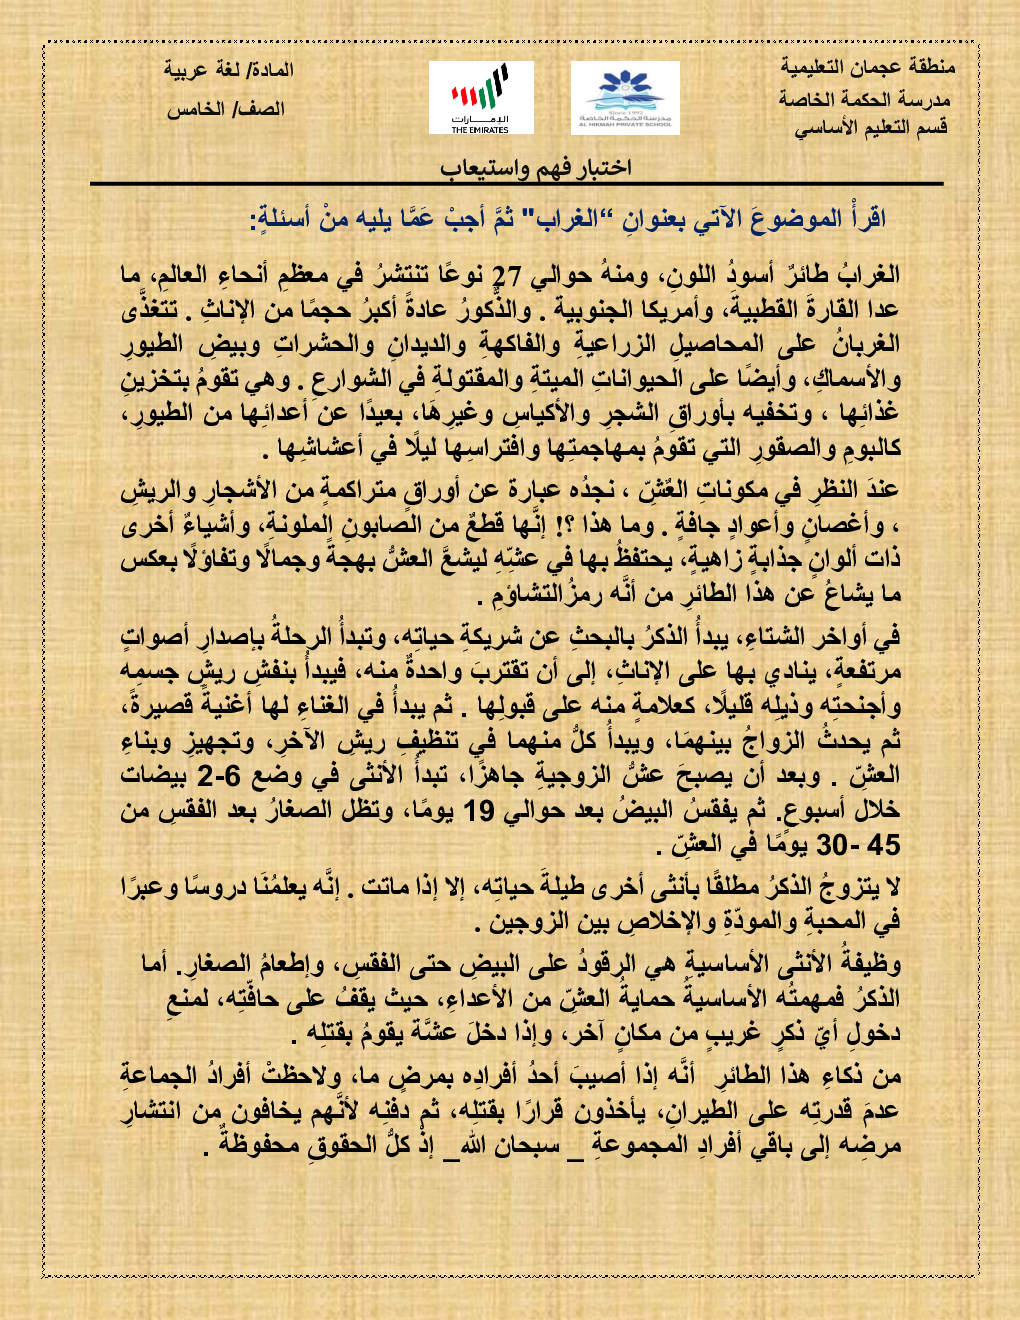 منطقة عجمان التعليمية
مدرسة الحكمة الخاصة
قسم التعليم الأساسي
Since 1992
مدرسة الحكمة الخاصة
AL HIKMAH PRIVATE SCHOOL
الإمارات
THE EMIRATES
المادة/ لغة عربية
الصف/ الخامس
اختبار فهم واستيعاب
اقرأْ الموضوعَ الآتي بعنوانِ “الغراب" ثمَّ أجبْ عَمَّا يليه منْ أسئلةٍ:
الغرابُ طائرٌ أسودُ اللونِ، ومنهُ حوالي 27 نوعًا تنتشرُ في معظمِ أنحاءِ العالمِ، ما
عدا القارةَ القطبيةَ، وأمريكا الجنوبية . والذُّكورُ عادةً أكبرُ حجمًا من الإناثِ . تتغذَّى
الغربانُ على المحاصيلِ الزراعيةِ والفاكهةِ والديدانِ والحشراتِ وبيضِ الطيورِ
والأسماكِ، وأيضًا على الحيواناتِ الميتةِ والمقتولةِ في الشوارعِ . وهي تقومُ بتخزينِ
غذائِها ، وتخفيه بأوراقِ الشجرِ والأكياسِ وغيرِهَا، بعيدًا عن أعدائِها من الطيورِ،
كالبومِ والصقورِ التي تقومُ بمهاجمتِها وافتراسِها ليلًا في أعشاشِها .
عندَ النظرِ في مكوناتِ العُشِّ ، نجدُه عبارة عن أوراقٍ متراكمةٍ من الأشجارِ والريشِ
، وأغصانٍ وأعوادٍ جافةٍ . وما هذا ؟! إنَّها قطعٌ من الصابونِ الملونةِ، وأشياءٌ أخرى
ذات ألوانٍ جذابةٍ زاهيةٍ، يحتفظُ بها في عشِّهِ ليشعَّ العشُّ بهجةً وجمالًا وتفاؤلًا بعكس
ما يشاعُ عن هذا الطائرِ من أنَّه رمزُالتشاؤمِ .
في أواخر الشتاءِ، يبدأُ الذكرُ بالبحثِ عن شريكةِ حياتِه، وتبدأُ الرحلةُ بإصدارِ أصواتٍ
مرتفعةٍ، ينادي بها على الإناثِ، إلى أن تقتربَ واحدةٌ منه، فيبدأُ بنفشِ ريشِ جسمِه
وأجنحتِه وذيلِه قليلًا، كعلامةٍ منه على قبولِها . ثم يبدأُ في الغناءِ لها أغنيةً قصيرةً،
ثم يحدثُ الزواجُ بينهمَا، ويبدأُ كلٌّ منهما في تنظيفِ ريشِ الآخرِ، وتجهيزِ وبناءِ
العشِّ . وبعد أن يصبحَ عشُّ الزوجيةِ جاهزًا، تبدأُ الأنثى في وضع 6-2 بيضات
خلال أسبوعٍ. ثم يفقسُ البيضُ بعد حوالي 19 يومًا، وتظل الصغارُ بعد الفقسِ من
45 -30 يومًا في العشِّ .
لا يتزوجُ الذكرُ مطلقًا بأنثى أخرى طيلةَ حياتِه، إلا إذا ماتت . إنَّه يعلمُنَا دروسًا وعبرًا
في المحبةِ والمودّةِ والإخلاصِ بين الزوجين .
وظيفةُ الأنثى الأساسيةِ هي الرقودُ على البيضِ حتى الفقسِ، وإطعامُ الصغارِ. أما
الذكرُ فمهمتُه الأساسيةُ حمايةُ العشِّ من الأعداءِ، حيث يقفُ على حافّتِه، لمنعِ
دخولِ أيّ ذكرٍ غريبٍ من مكانٍ آخر، وإذا دخلَ عشَّة يقومُ بقتلِه .
من ذكاءِ هذا الطائرِ أنَّه إذا أصيبَ أحدُ أفرادِه بمرضٍ ما، ولاحظتْ أفرادُ الجماعةِ
عدمَ قدرتِه على الطيرانِ، يأخذون قرارًا بقتلِه، ثم دفنِه لأنَّهم يخافون من انتشارِ
مرضِه إلى باقي أفرادِ المجموعةِ _ سبحان الله_ إذْ كلُّ الحقوقِ محفوظةٌ .